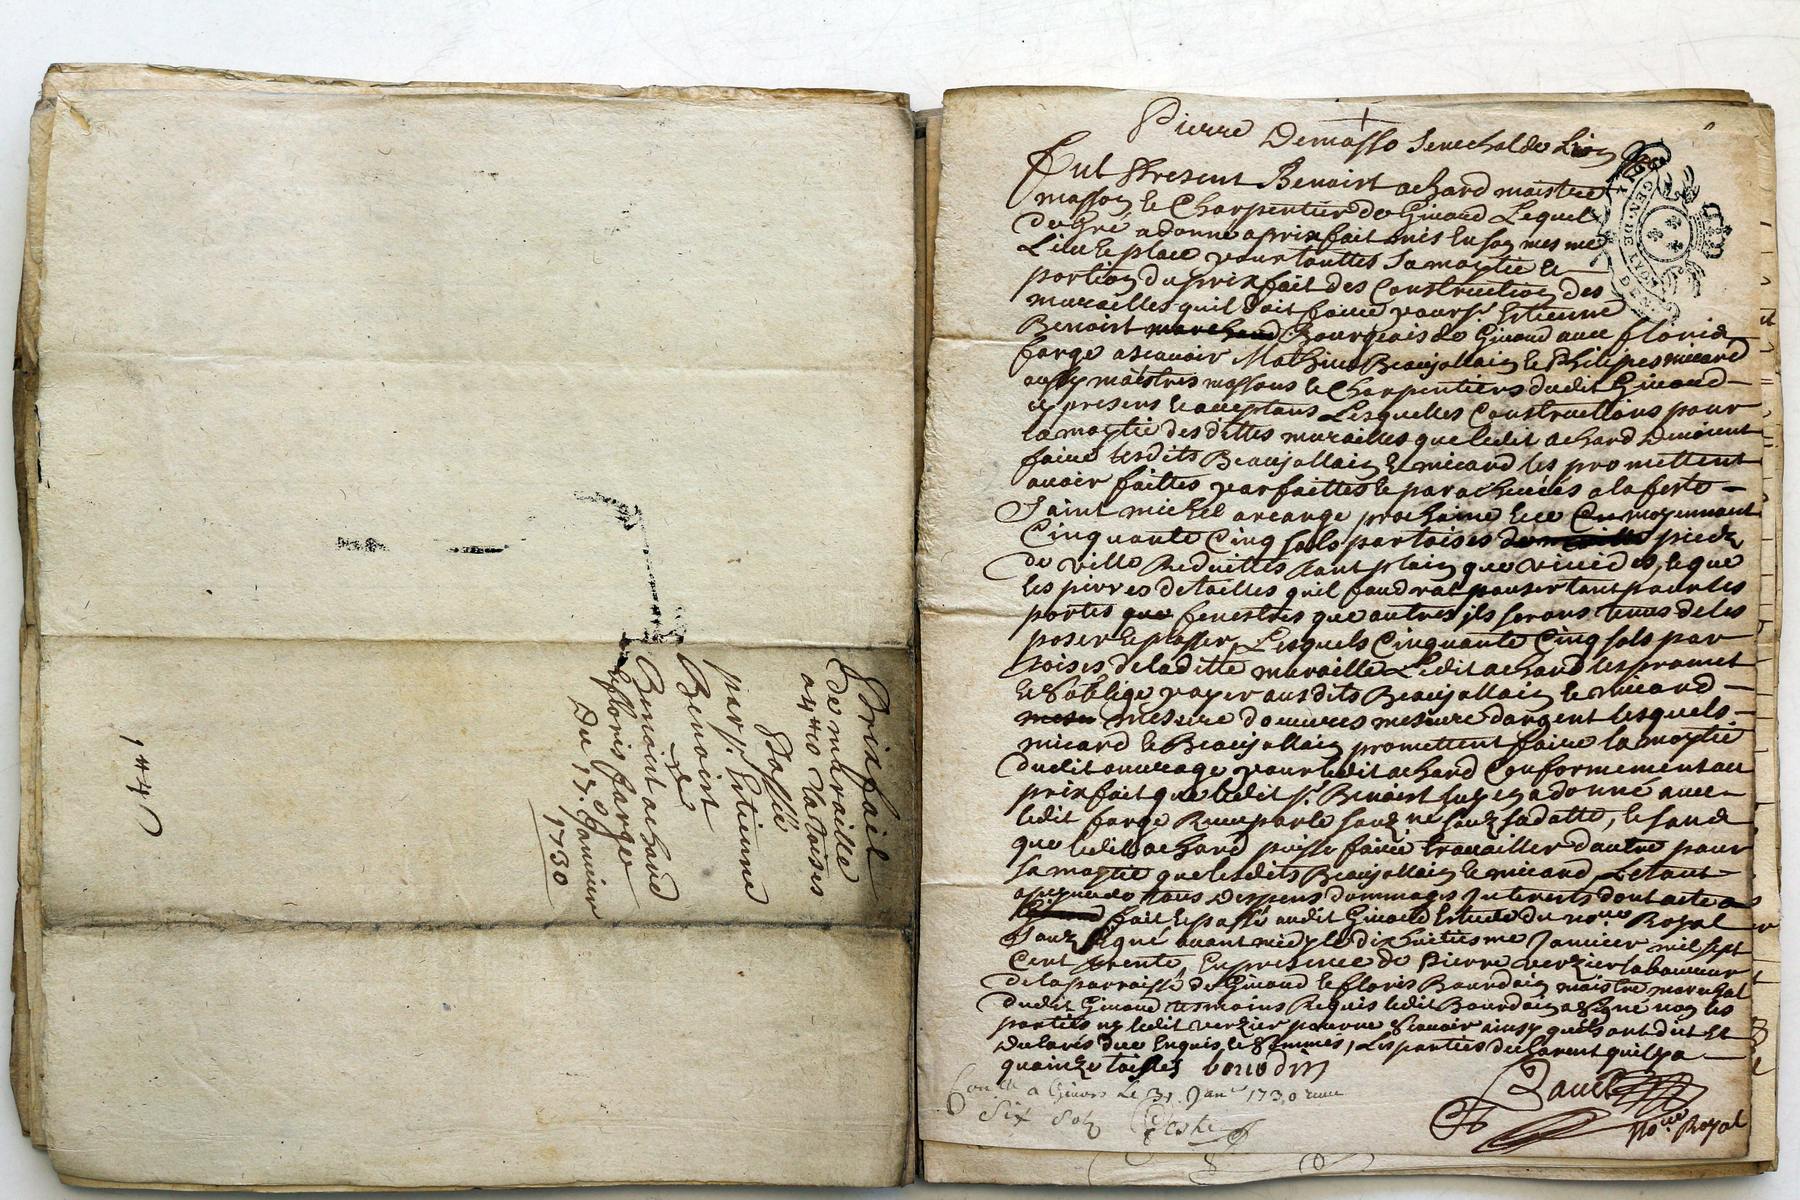 Prixfait
de muraille
a 440 la toises
Passée
par Sr. Estienne
Benoist
a
Benoist achard
& floris farge
Du 17. Janvier
1730
Pierre Demasso Senechal de Lion
GEN. DE LYON
Fut Present Benoist achard maistre
masson et Charpentier de Givord Lequel
de Gré a donné a prixfait mis en son mesme
Lieu et place pour touttes sa moytié et
portion du prixfait des Construction des
murailles quil doit faire pour sr. Estienne
Benoist marchand Bourgeois de Givord avec floris
farge ascavoir Mathieu Beaujollain et Philipes micard
aussy maistres massons et Charpentiers dudit Givord
cy presens et acceptans Lesquelles Constructions pour
la moytié des dittes murailles que ledit achard devoient
faire lesdits Beaujollain et micard les promettent
avoir faittes parfaittes et parachevées a la feste
Saint michel arcange prochaine et ce moyennant
Cinquante Cinq sols par toises pieds
de ville Reduittes tant plain que vuides, et que
les pierres de tailles quil faudrat pauser tant pour les
portes que fenestres que autres ils serons tenus de les
poser et placer, Lesquels Cinquante Cinq sols par
toises de laditte muraille Ledit achard les promet
et soblige payer ausdits Beaujollain et micard
mesure douvres mesure dargent lesquels
micard et Beaujollain promettent faire la moytié
dudit ouvrage pour ledit achard Conformement au
prixfait que ledit sr. Benoist luy en a donné avec
ledit farge Receu par le sauz ne sauz sa datte, et sans
que ledit achard puisse faire travailler dautre pour
sa moytié que lesdits Beaujollain et micard Le tant
a peyne de tous despens dommages Interests dont acte
fait et passé audit Givord Estude du nore Royal
Sauz signé avant midy le dixhuitiesme Janvier mil sept
Cent trente, En presence de Pierre verzier laboureur
de la parroisse de Givord et floris Bourdain maistre marechal
dudit Givord tesmoins Requis ledit Bourdain a signé non les
parties ny ledit verzier pour ne scavoir ainsy quils ont dit et
Declarés de ce Enquis et sommes, Les parties declarent quil y a
quainze toises bouodin
Conllé a Givors Le 31 Janr 1730 receu
Six Solz
nore Royal